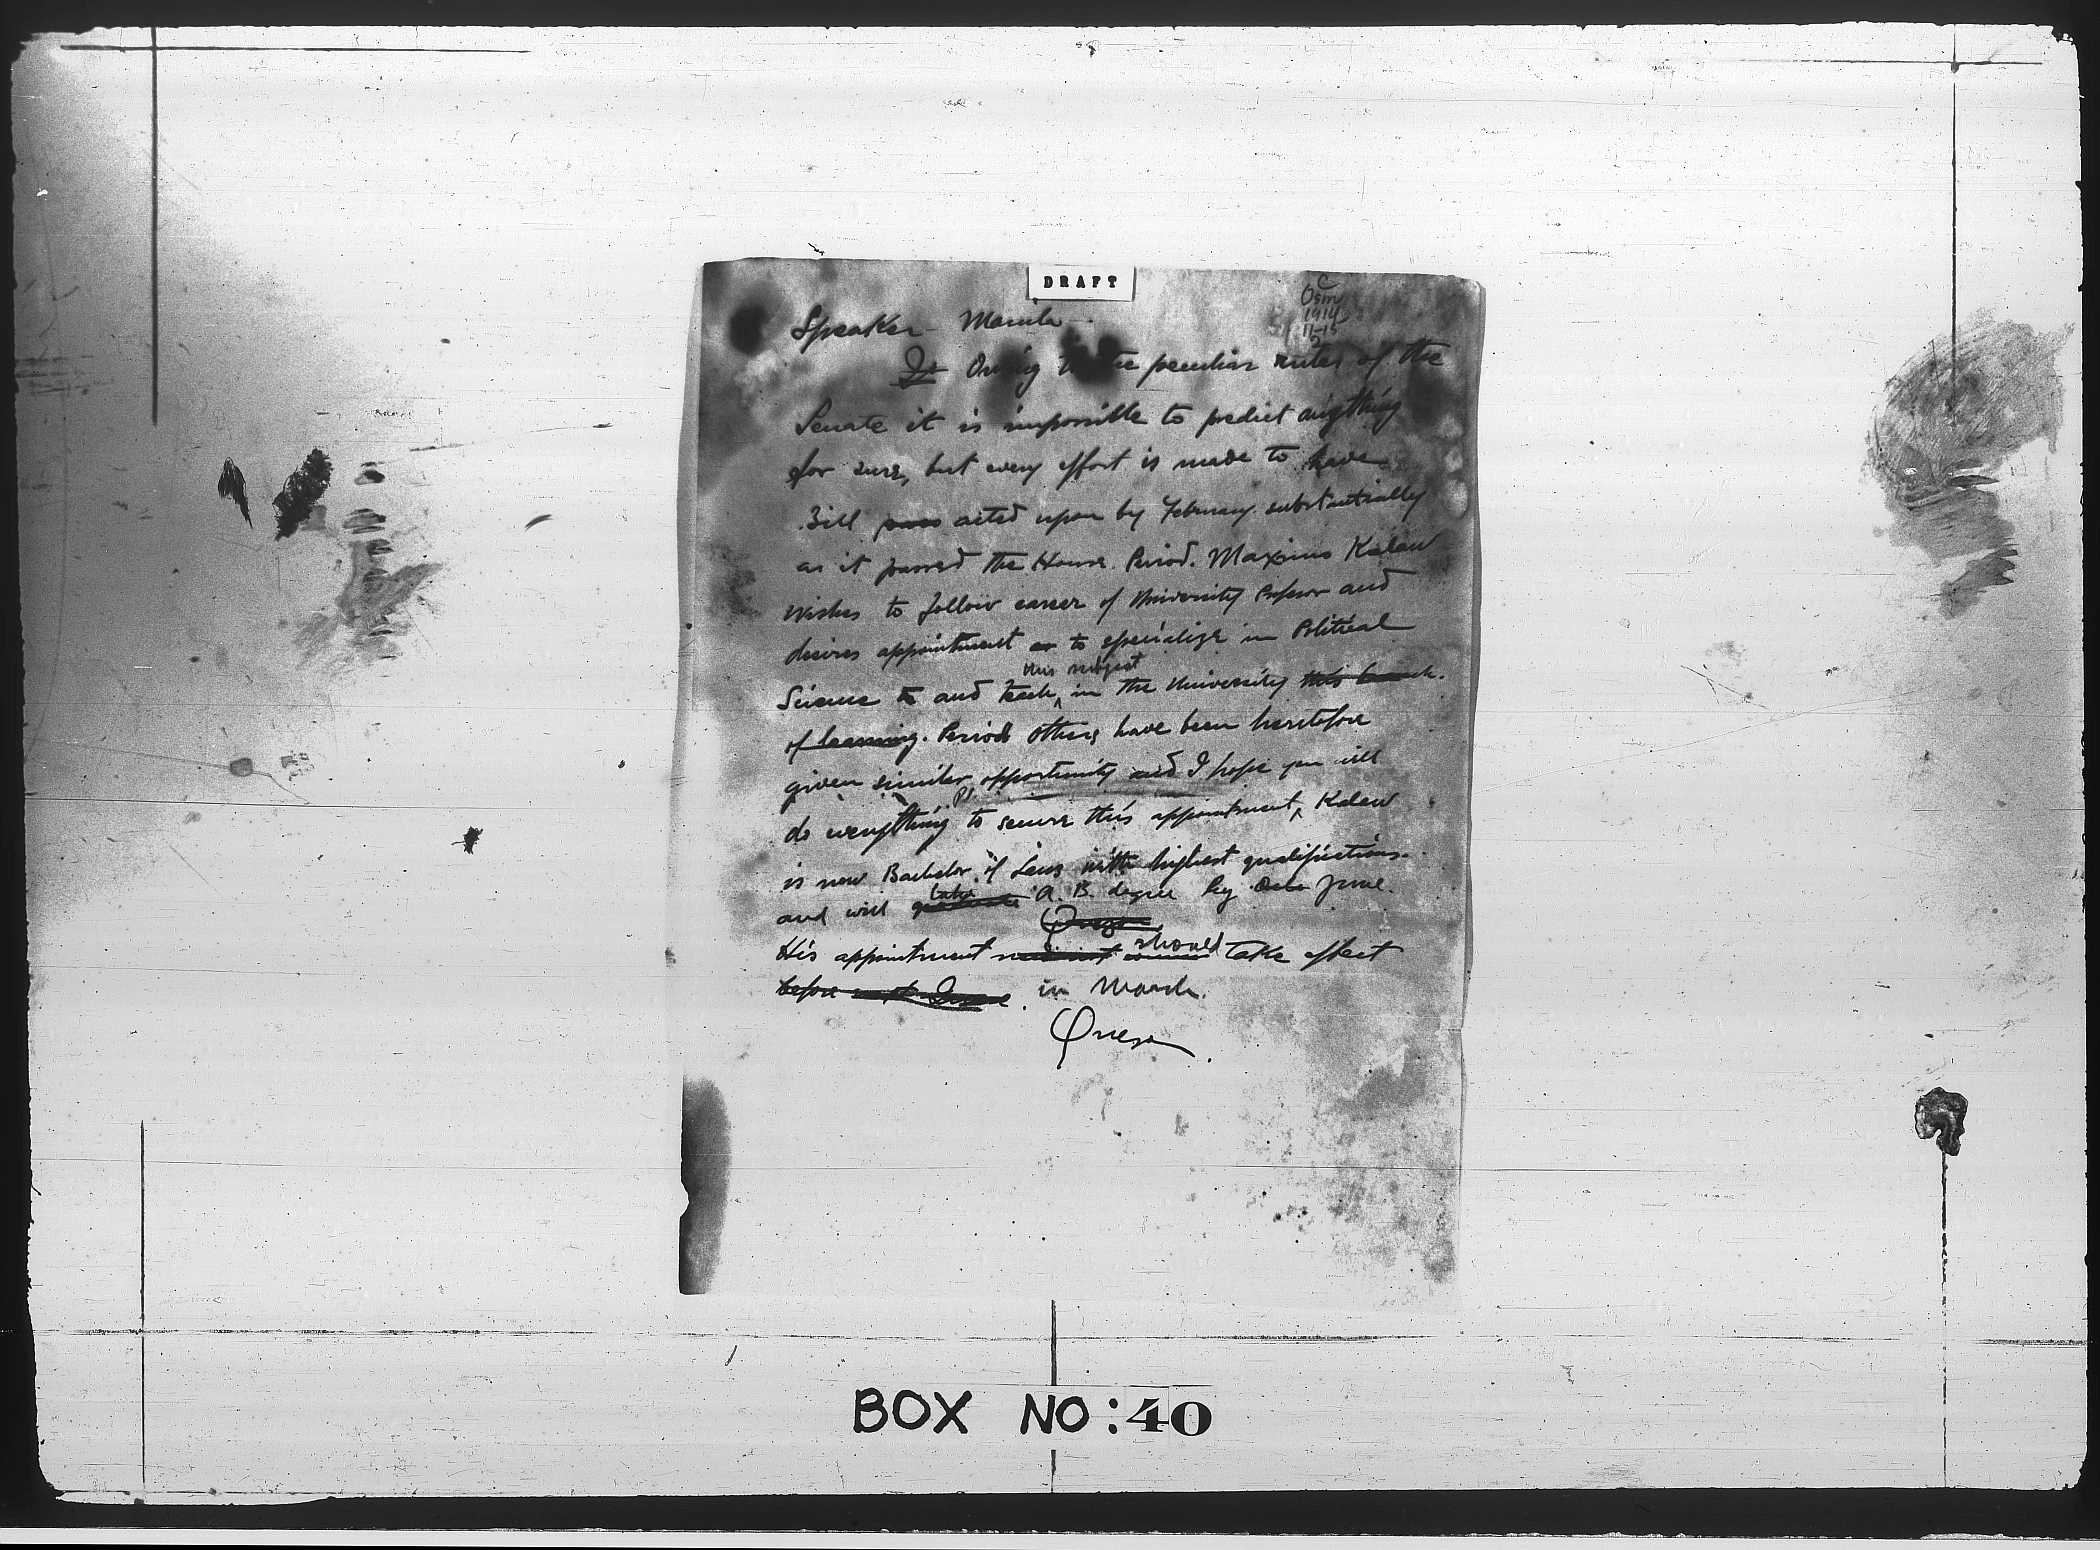 DRAFT
C
Osm
1914
11-15
5
Speaker - Manila -
It Owing to the peculiar rules of the
Senate it is impossible to predict anything
for sure, but every effort is made to have
Bill pass acted upon by February substantially
as it passed the House. Period. Maximo Kalaw
wishes to follow career of University Professor and
desires appointment as to specialize in Political
this subject
Science to and teach in the University this branch.
of learning. Period Others have been heretofore
given similar opportunity and I hope you will
do everything to secure this appointment, Kalaw
is now Bachelor of Laws with highest qualifications.
take
and will graduate A. B. degree by June.
Quezon
should
His appointment must take effect
before next June. in March.
Quezon.
BOX NO:40